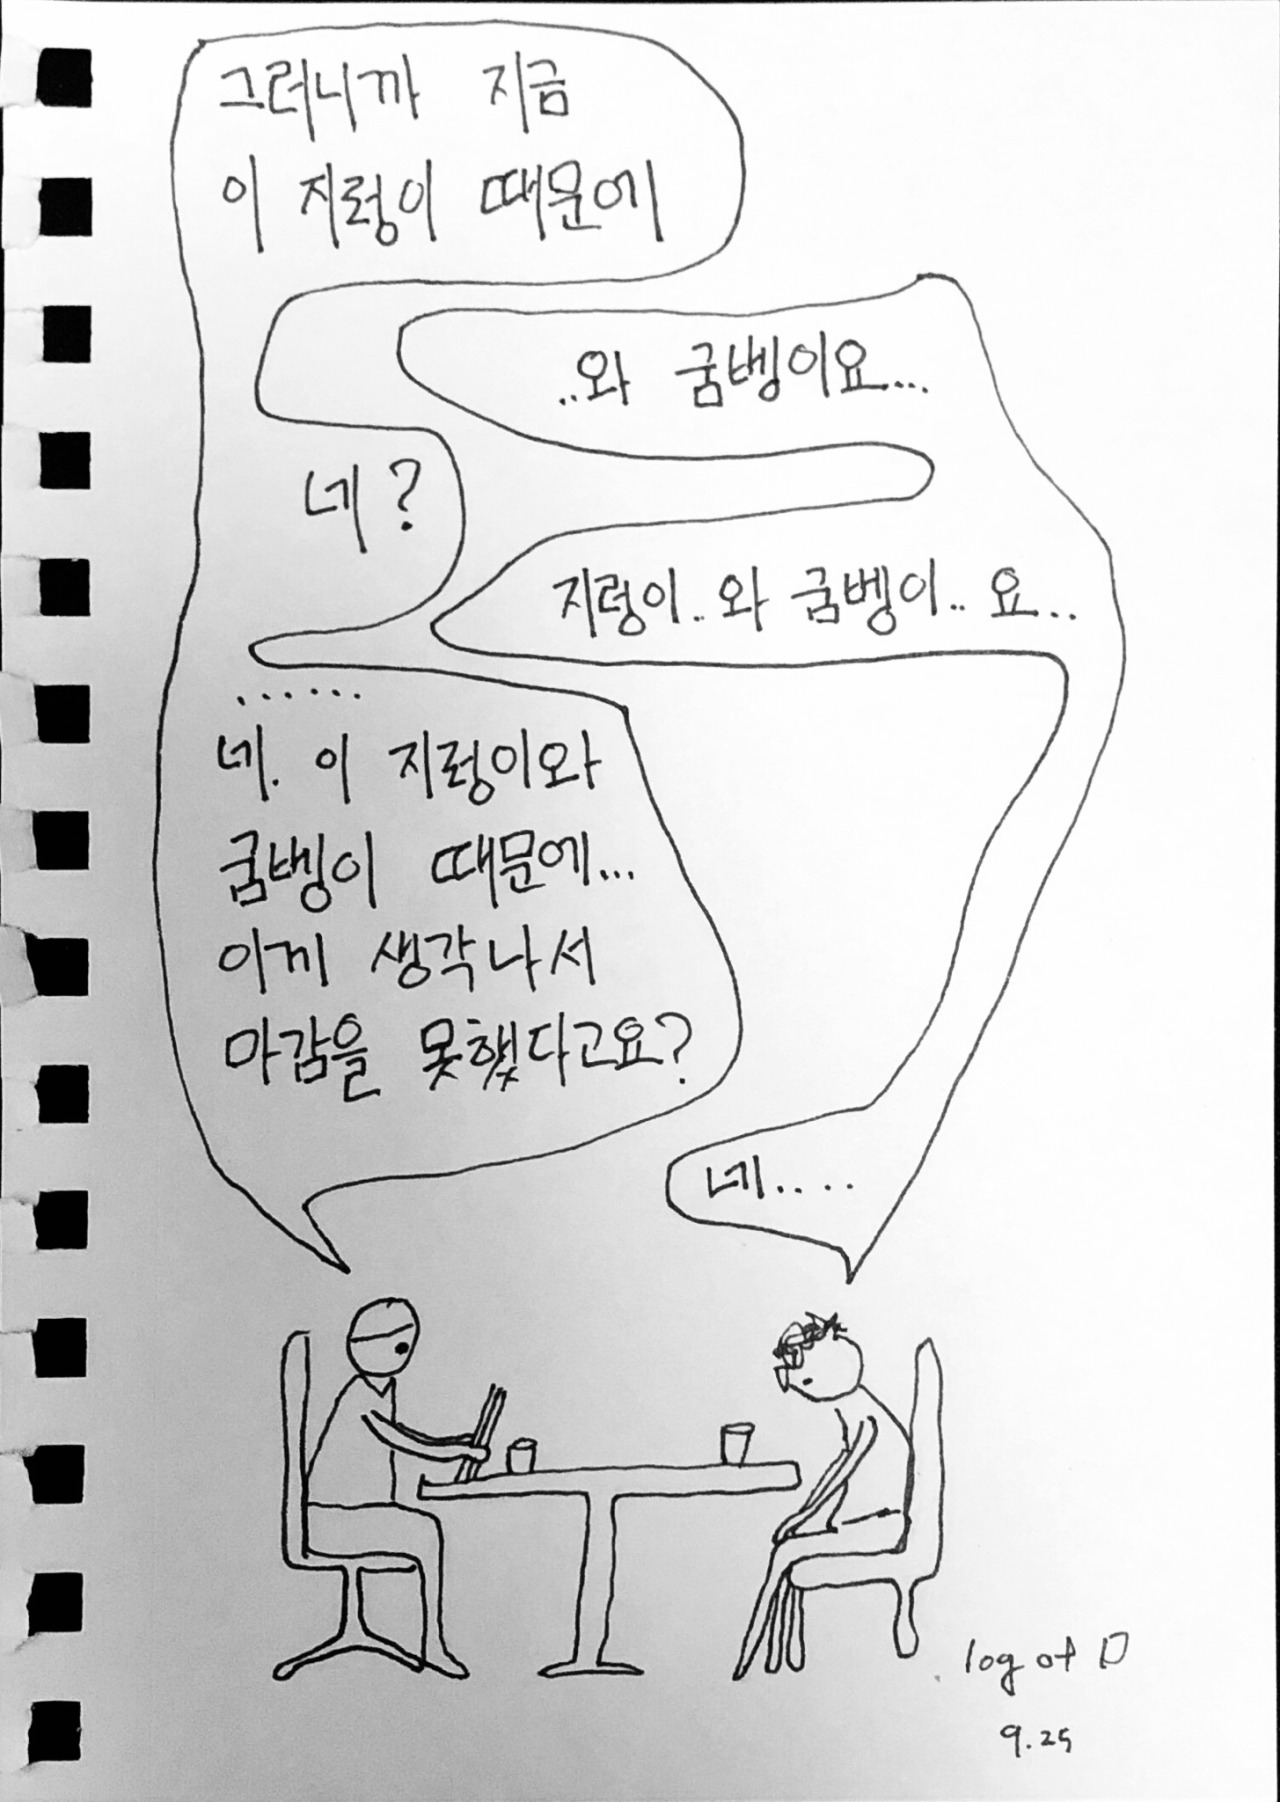 그러니까 지금
이 지렁이 때문에
..와 굼벵이요...
네?
지렁이..와 굼벵이.. 요...
......
네. 이 지렁이와
굼벵이 때문에...
아끼 생각나서
마감을 못했다고요?
네....
log of D
9.25